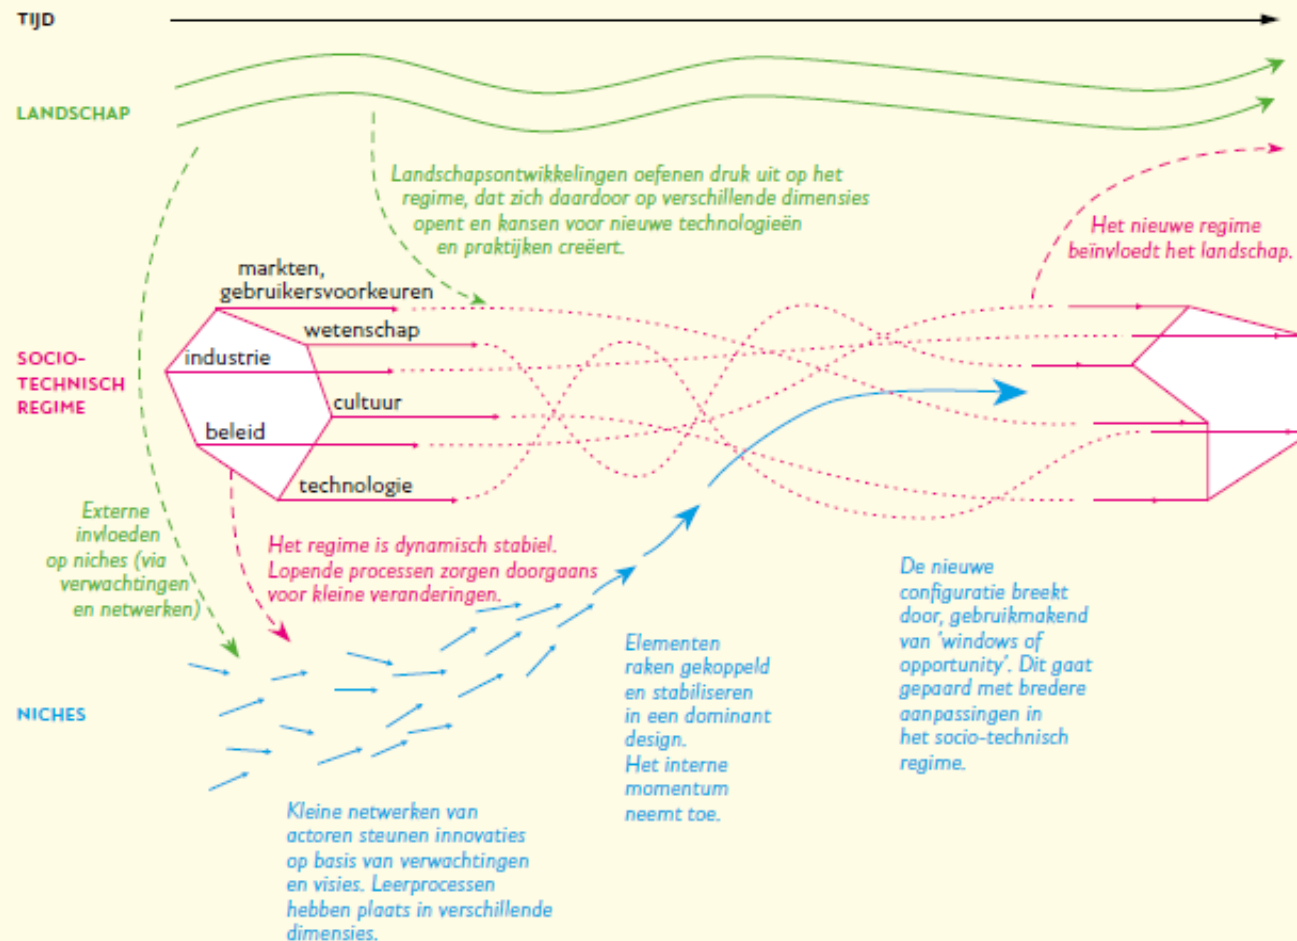 TIJD
LANDSCHAP
Landschapsontwikkelingen oefenen druk uit op het
regime, dat zich daardoor op verschillende dimensies
opent en kansen voor nieuwe technologieën
en praktijken creëert.
Het nieuwe regime
beïnvloedt het landschap.
markten,
gebruikersvoorkeuren
wetenschap
SOCIO-
TECHNISCH
REGIME
industrie
cultuur
beleid
technologie
Externe
invloeden
op niches (via
verwachtingen
en netwerken)
Het regime is dynamisch stabiel.
Lopende processen zorgen doorgaans
voor kleine veranderingen.
NICHES
Kleine netwerken van
actoren steunen innovaties
op basis van verwachtingen
en visies. Leerprocessen
hebben plaats in verschillende
dimensies.
Elementen
raken gekoppeld
en stabiliseren
in een dominant
design.
Het interne
momentum
neemt toe.
De nieuwe
configuratie breekt
door, gebruikmakend
van 'windows of
opportunity'. Dit gaat
gepaard met bredere
aanpassingen in
het socio-technisch
regime.